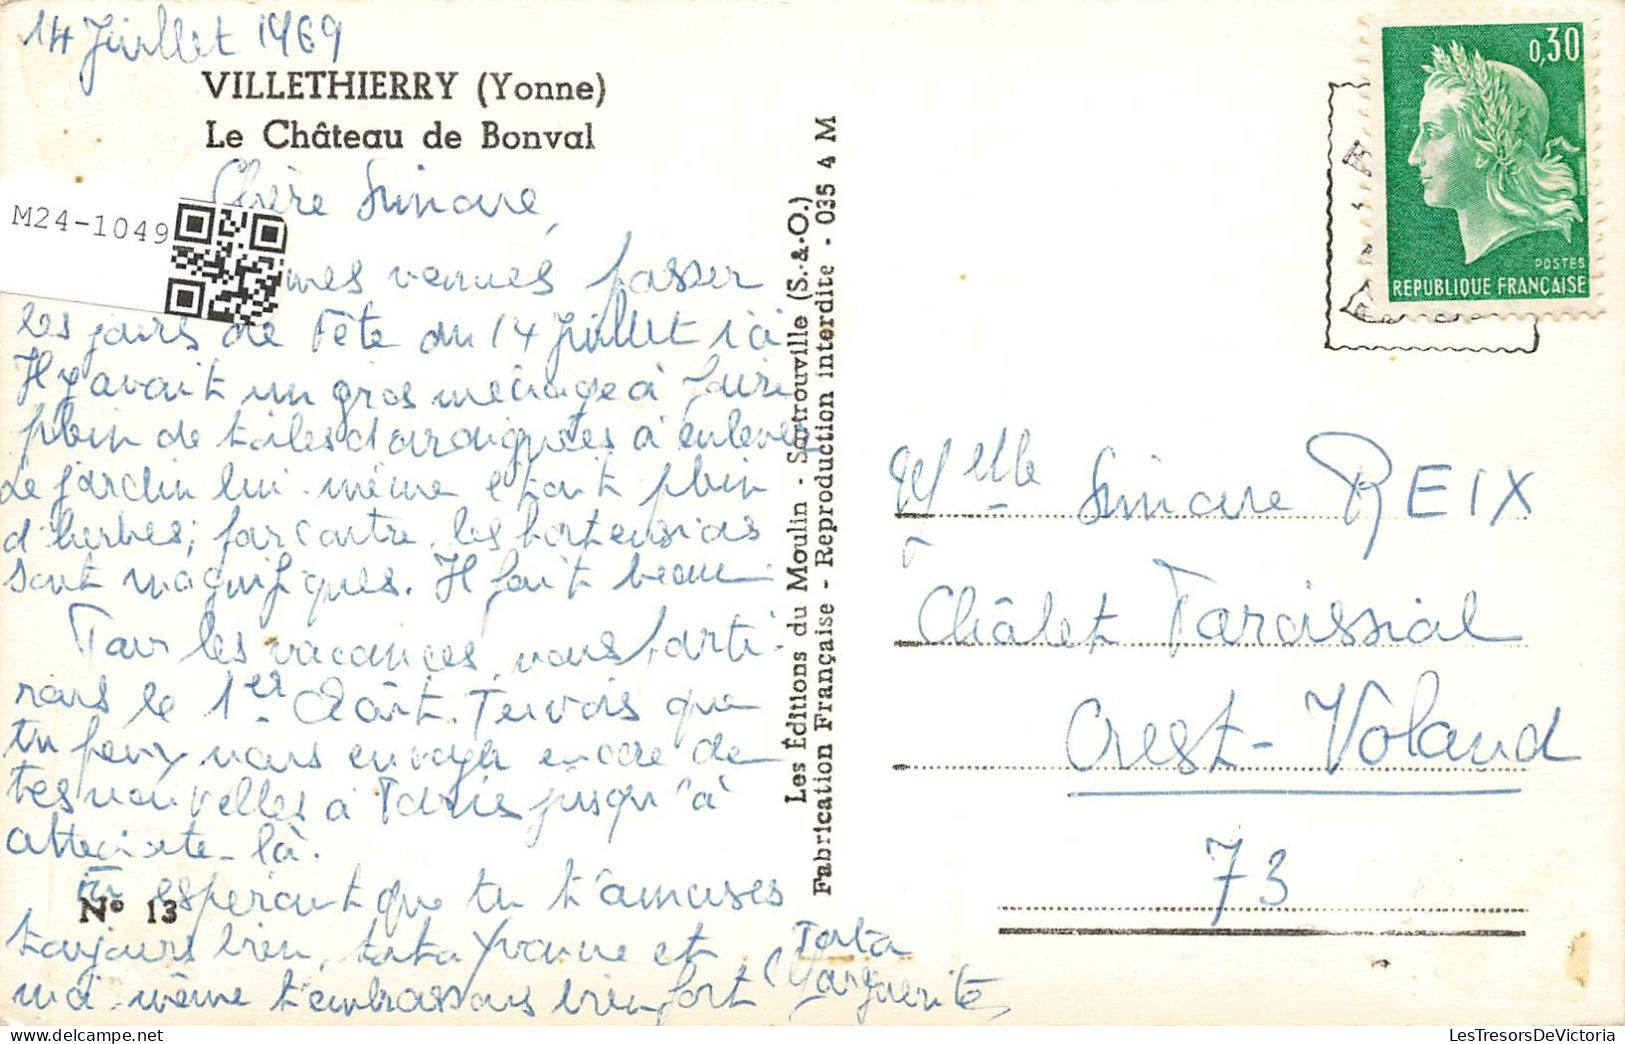 14 Juillet 1969
VILLETHIERRY (Yonne)
Le Château de Bonval
M24-1049
Chère Simone,
mes venues passer
les jours de Fête du 14 Juillet ici
Il y avait un gros ménage à faire
plein de toiles d'araignées à enlever
Le jardin lui-même était plein
d'herbes; par contre les hortensias
sont magnifiques. Il fait beau
Pour les vacances, nous parti-
rons le 1er Août. Tu vois que
tu peux nous envoyer encore de
tes nouvelles à Paris jusqu'à
cette date-là.
En espérant que tu t'amuses
N° 13
toujours bien, tata Yvonne et
moi-même t'embrassons bien fort
Tata
Marguerite
Les Éditions du Moulin - Sartrouville (S.-&-O.)
Fabrication Française - Reproduction interdite - 035 4 M
0,30
POSTES
REPUBLIQUE FRANÇAISE
Melle Simone REIX
Châlet Tarcissial
Crest-Voland
73
LesTresorsDeVictoria